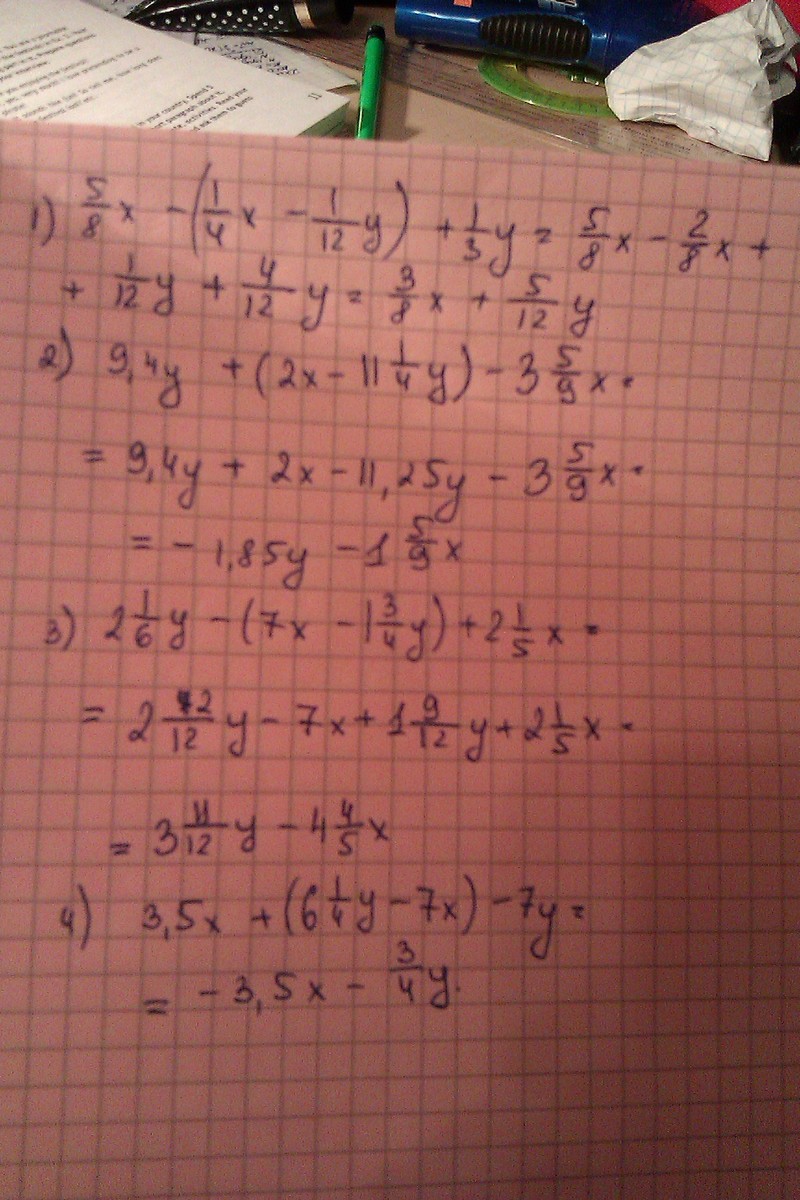 1) 5/8 x - (1/4 x - 1/12 y) + 1/3 y = 5/8 x - 2/8 x +
+ 1/12 y + 4/12 y = 3/8 x + 5/12 y
2) 9,4y + (2x - 11 1/4 y) - 3 5/9 x =
= 9,4y + 2x - 11,25y - 3 5/9 x =
= - 1,85y - 1 5/9 x
3) 2 1/6 y - (7x - 1 3/4 y) + 2 1/5 x =
= 2 2/12 y - 7x + 1 9/12 y + 2 1/5 x =
= 3 11/12 y - 4 4/5 x
4) 3,5x + (6 1/4 y - 7x) - 7y =
= - 3,5x - 3/4 y.